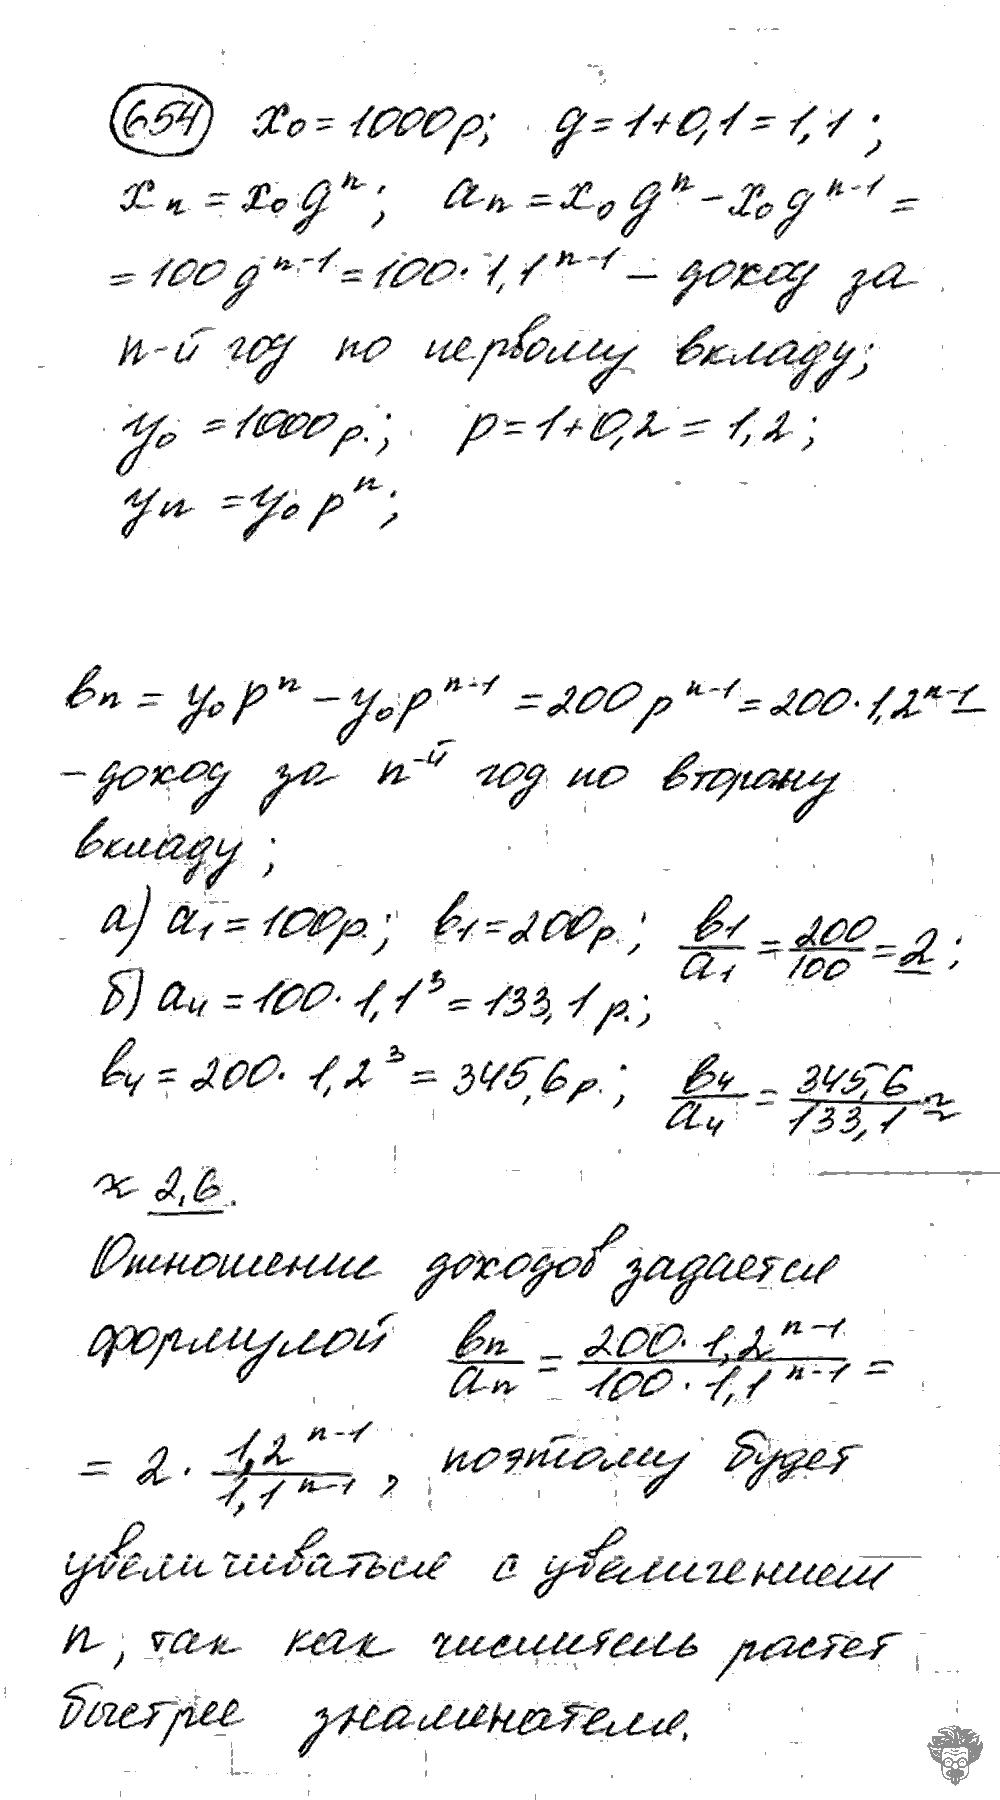 654 x₀ = 1000 р; g = 1+0,1 = 1,1;
xₙ = x₀gⁿ; aₙ = x₀gⁿ − x₀gⁿ⁻¹ =
= 100gⁿ⁻¹ = 100·1,1ⁿ⁻¹ − доход за
n-й год по первому вкладу;
y₀ = 1000 р.; p = 1+0,2 = 1,2;
yₙ = y₀pⁿ;
вₙ = y₀pⁿ − y₀pⁿ⁻¹ = 200pⁿ⁻¹ = 200·1,2ⁿ⁻¹ −
− доход за n-й год по второму
вкладу;
а) a₁ = 100 р.; в₁ = 200 р.; в₁/a₁ = 200/100 = 2;
б) a₄ = 100·1,1³ = 133,1 р.;
в₄ = 200·1,2³ = 345,6 р.; в₄/a₄ = 345,6/133,1 ≈
≈ 2,6.
Отношение доходов задается
формулой вₙ/aₙ = 200·1,2ⁿ⁻¹/100·1,1ⁿ⁻¹ =
= 2·1,2ⁿ⁻¹/1,1ⁿ⁻¹, поэтому будет
увеличиваться с увеличением
n, так как числитель растет
быстрее знаменателя.